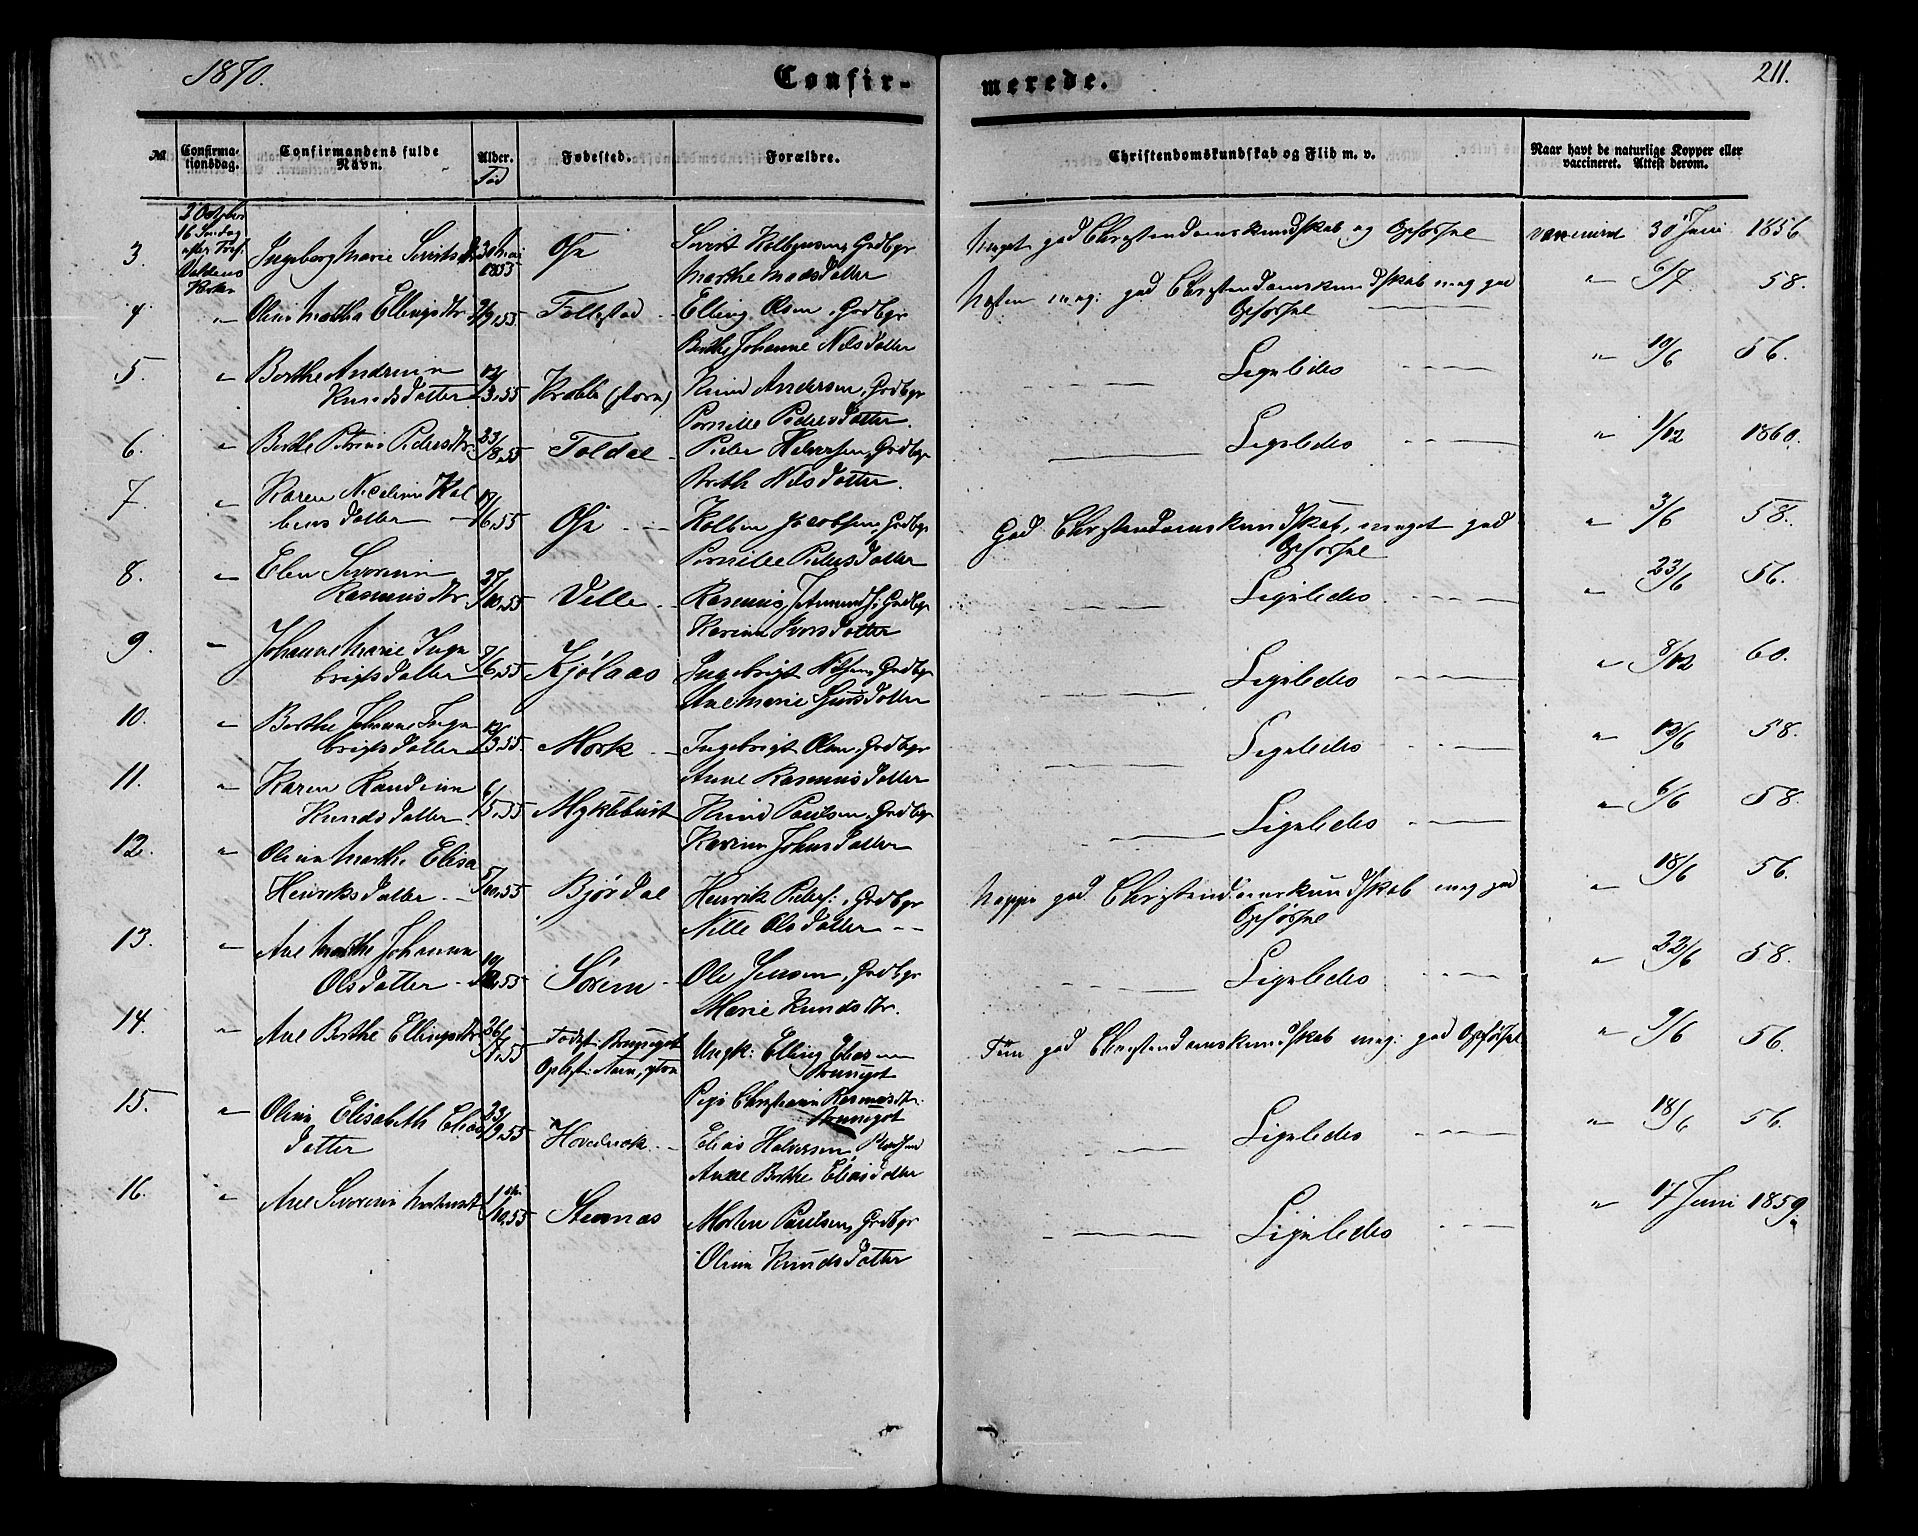 1870.
Confir-
merede.
211.
No.
Confirma-
tionsdag.
Confirmandens fulde
Navn.
Alder.
Fød
Fødested.
Forældre.
Christendomskundskab og Flid m. v.
Naar havt de naturlige Kopper eller
vaccineret. Attest derom.
2 October
16 Søndag
efter Tref.
Voldens
Kirke
3. Ingeborg Marie Siverts 30 Mai 1855 Ose Sivert Kolbensen, Grdbgr
Marthe Madsdatter
Meget god Christendomskundskab og Opførsel vaccineret 30 Juni 1856
4. " Oline Martha Ellingsdtr 55 Folkestad Elling Olsen, Grdbgr
Berthe Johanne Nilsdatter
Næsten meg: god Christendomskundskab meg god
Opførsel
" 6/7 58.
5. " Berthe Andrine
Knudsdatter 12/3,55 Krøble Knud Andersen, Grdbgr
Pernille Pedersdatter.
Ligeledes " 10/6 56.
6. " Berthe Petrine Pedersdtr 23/8,55 Foldal Peder Halvorsen, Grdbgr
Brith Nilsdatter.
Ligeledes " 1/12 1860.
7. " Karen Nicoline Kol
bensdatter 6,55 Ose Kolben Jacobsen, Grdbgr
Pernille Pedersdatter
God Christendomskundskab, meget god
Opførsel
" 3/6 58.
8. " Elen Severine
Rasmusdtr 27/10,55 Velle Rasmus Amunds, Grdbgr
Karine Iversdatter
Ligeledes " 23/6 56.
9. " Johanne Marie Inge
brigtsdatter 6,55 Kjølaas Ingebrigt Nilsen, Grdbgr
Ane Marie datter
Ligeledes " 8/12 60.
10. " Berthe Johanne Inge
brigtsdatter 12/3,55. Mork Ingebrigt Olsen, Grdbgr
Anne Rasmusdatter
Ligeledes " 12/6 58.
11. " Karen Randine
Knudsdatter. 6/5,55 Myklebust Knud Paulsen, Grdbgr
Karine Johnsdatter
Ligeledes " 6/6 58.
12. " Oline Marthe Elisa
Henriksdatter 5/10,55 Bjørdal Henrik Peders:, Grdbgr
Nille Olsdatter
god Christendomskundskab meg god
Opførsel
" 18/6 56.
13. " Ane Marthe Johanne
Olsdatter 55 Sørem Ole Jensen, Grdbgr
Marie Knudsdtr.
Ligeledes " 22/6 58.
14. " Ane Berthe Ellingsdtr 26/7,55 Fødest: Bruneget
Oplyst:
Ungk: Elling Eliassen
Bruneget
Pige Christianne Rasmusdtr:
Bruneget
god Christendomskundskab meg: god Opførsel " 9/6 56.
15. " Oline Elisabeth Elias
datter 23/9,55 Hovedneak Elias Halvorsen,
Anne Berthe Eliasdatter
Ligeledes " 18/6 56.
16. " Ane Severine 1 10,55 Steinnes Morten Paulsen, Grdbgr
Oline Knudsdatter
Ligeledes " 17 Juni 1859.